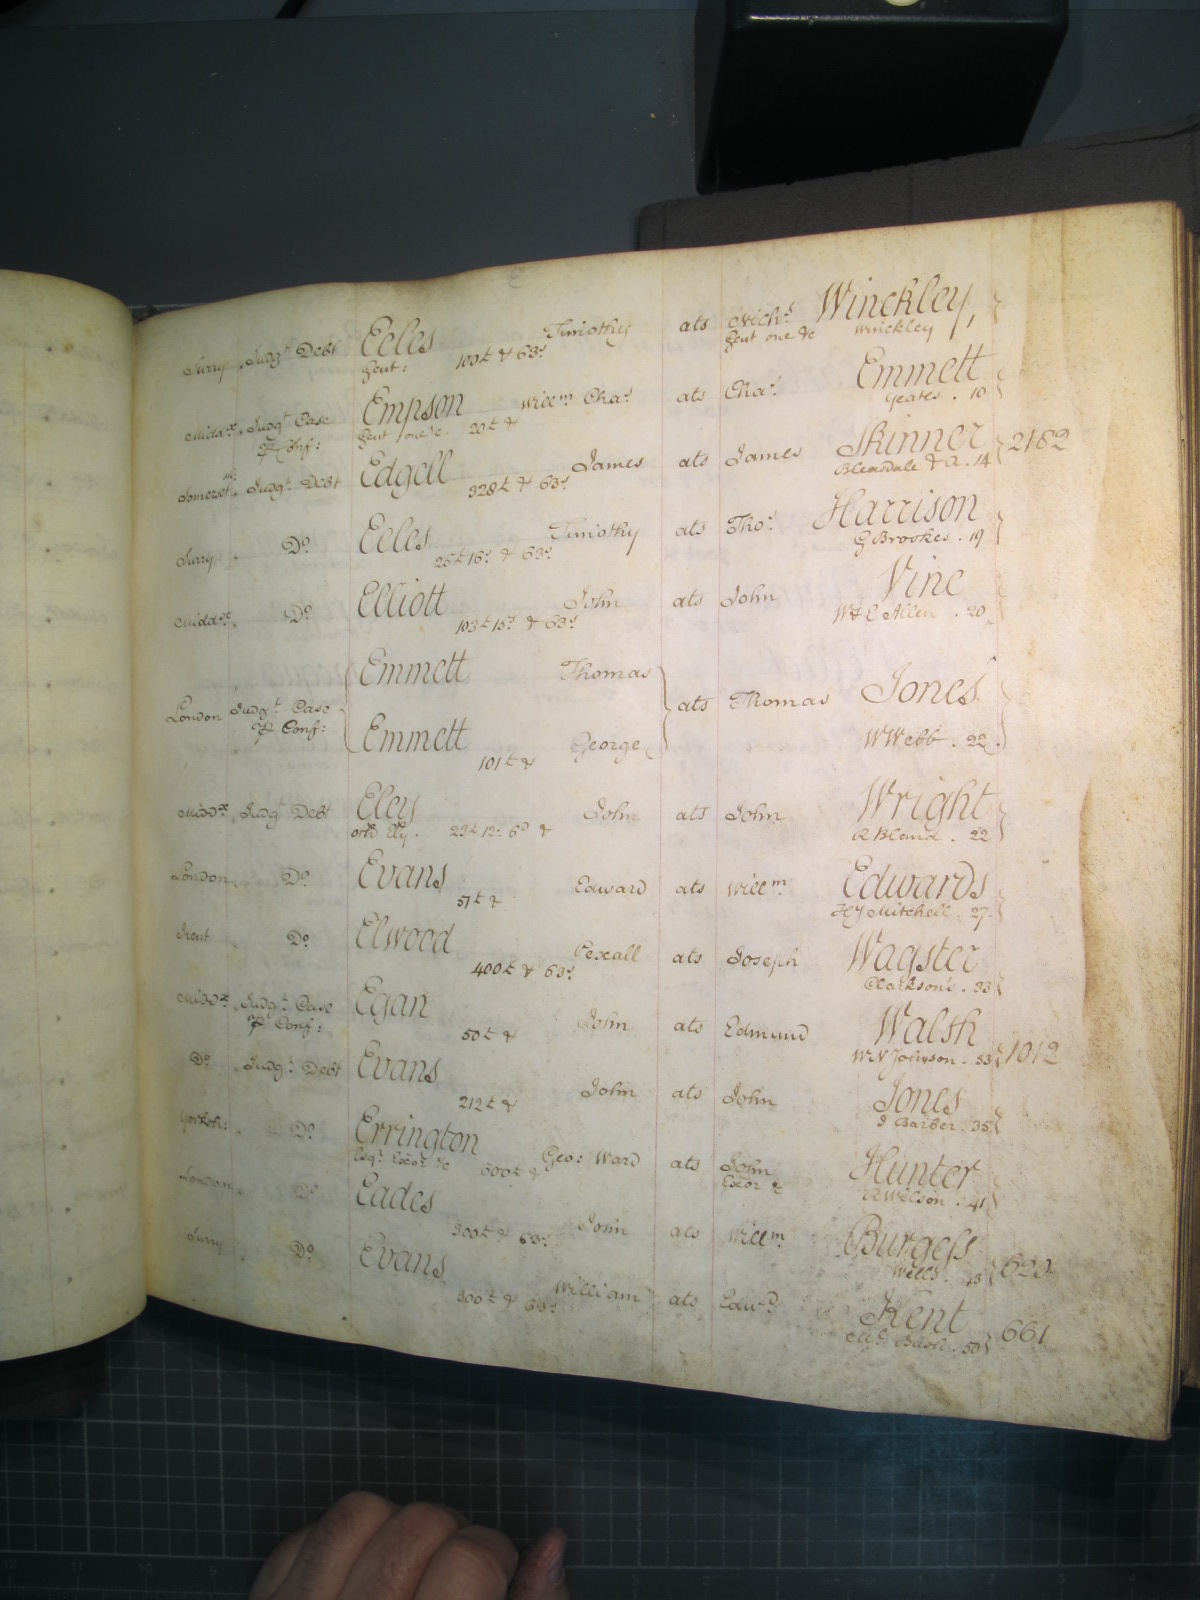 Surry Judgt Debt Eeles Timothy ats Nichs Winckley,
Gent: 100£ & 63s Gent one &c Winckley
Middx Judgt Case Empson Willm Chas ats Chas Emmett
P Conf: Gent one &c. 20£ & Yeates . 10
Somerset Judgt Debt Edgell James ats James Skinner 2182
328£ & 63s Bleasdale & Co . 14
Surry Do Eeles Timothy ats Thos Harrison
25£ 16s & 63s G Brookes . 19
Middx Do Elliott John ats John Vine
103£ 15s & 63s W & E Allen . 20
Emmett Thomas
London Judgt Case ats Thomas Jones
P Conf:
Emmett George W Webb . 22
101£ &
Middx Judgt Debt Eley John ats John Wright
orse Ely . 23£ 12s 6d & R Bland . 22
London Do Evans Edward ats Willm Edwards
51£ & Hy Mitchell . 27
Kent Do Elwood Pexall ats Joseph Wagster
400£ & 63s Clarksons . 33
Middx Judgt Case Egan John ats Edmund Walsh 1012
P Conf: 50£ & W N Johnson . 33
Do Judgt Debt Evans John ats John Jones
212£ & J Barber . 35
Yorksh: Do Errington Geo: Ward ats John Hunter
Esqr Exor &c 600£ & Exor & R Wilson . 41
London Do Eades John ats Willm Burgess
300£ & 63s Wells . 43
Surry Do Evans William ats Edwd Kent 661
300£ & 63s Bush . 50